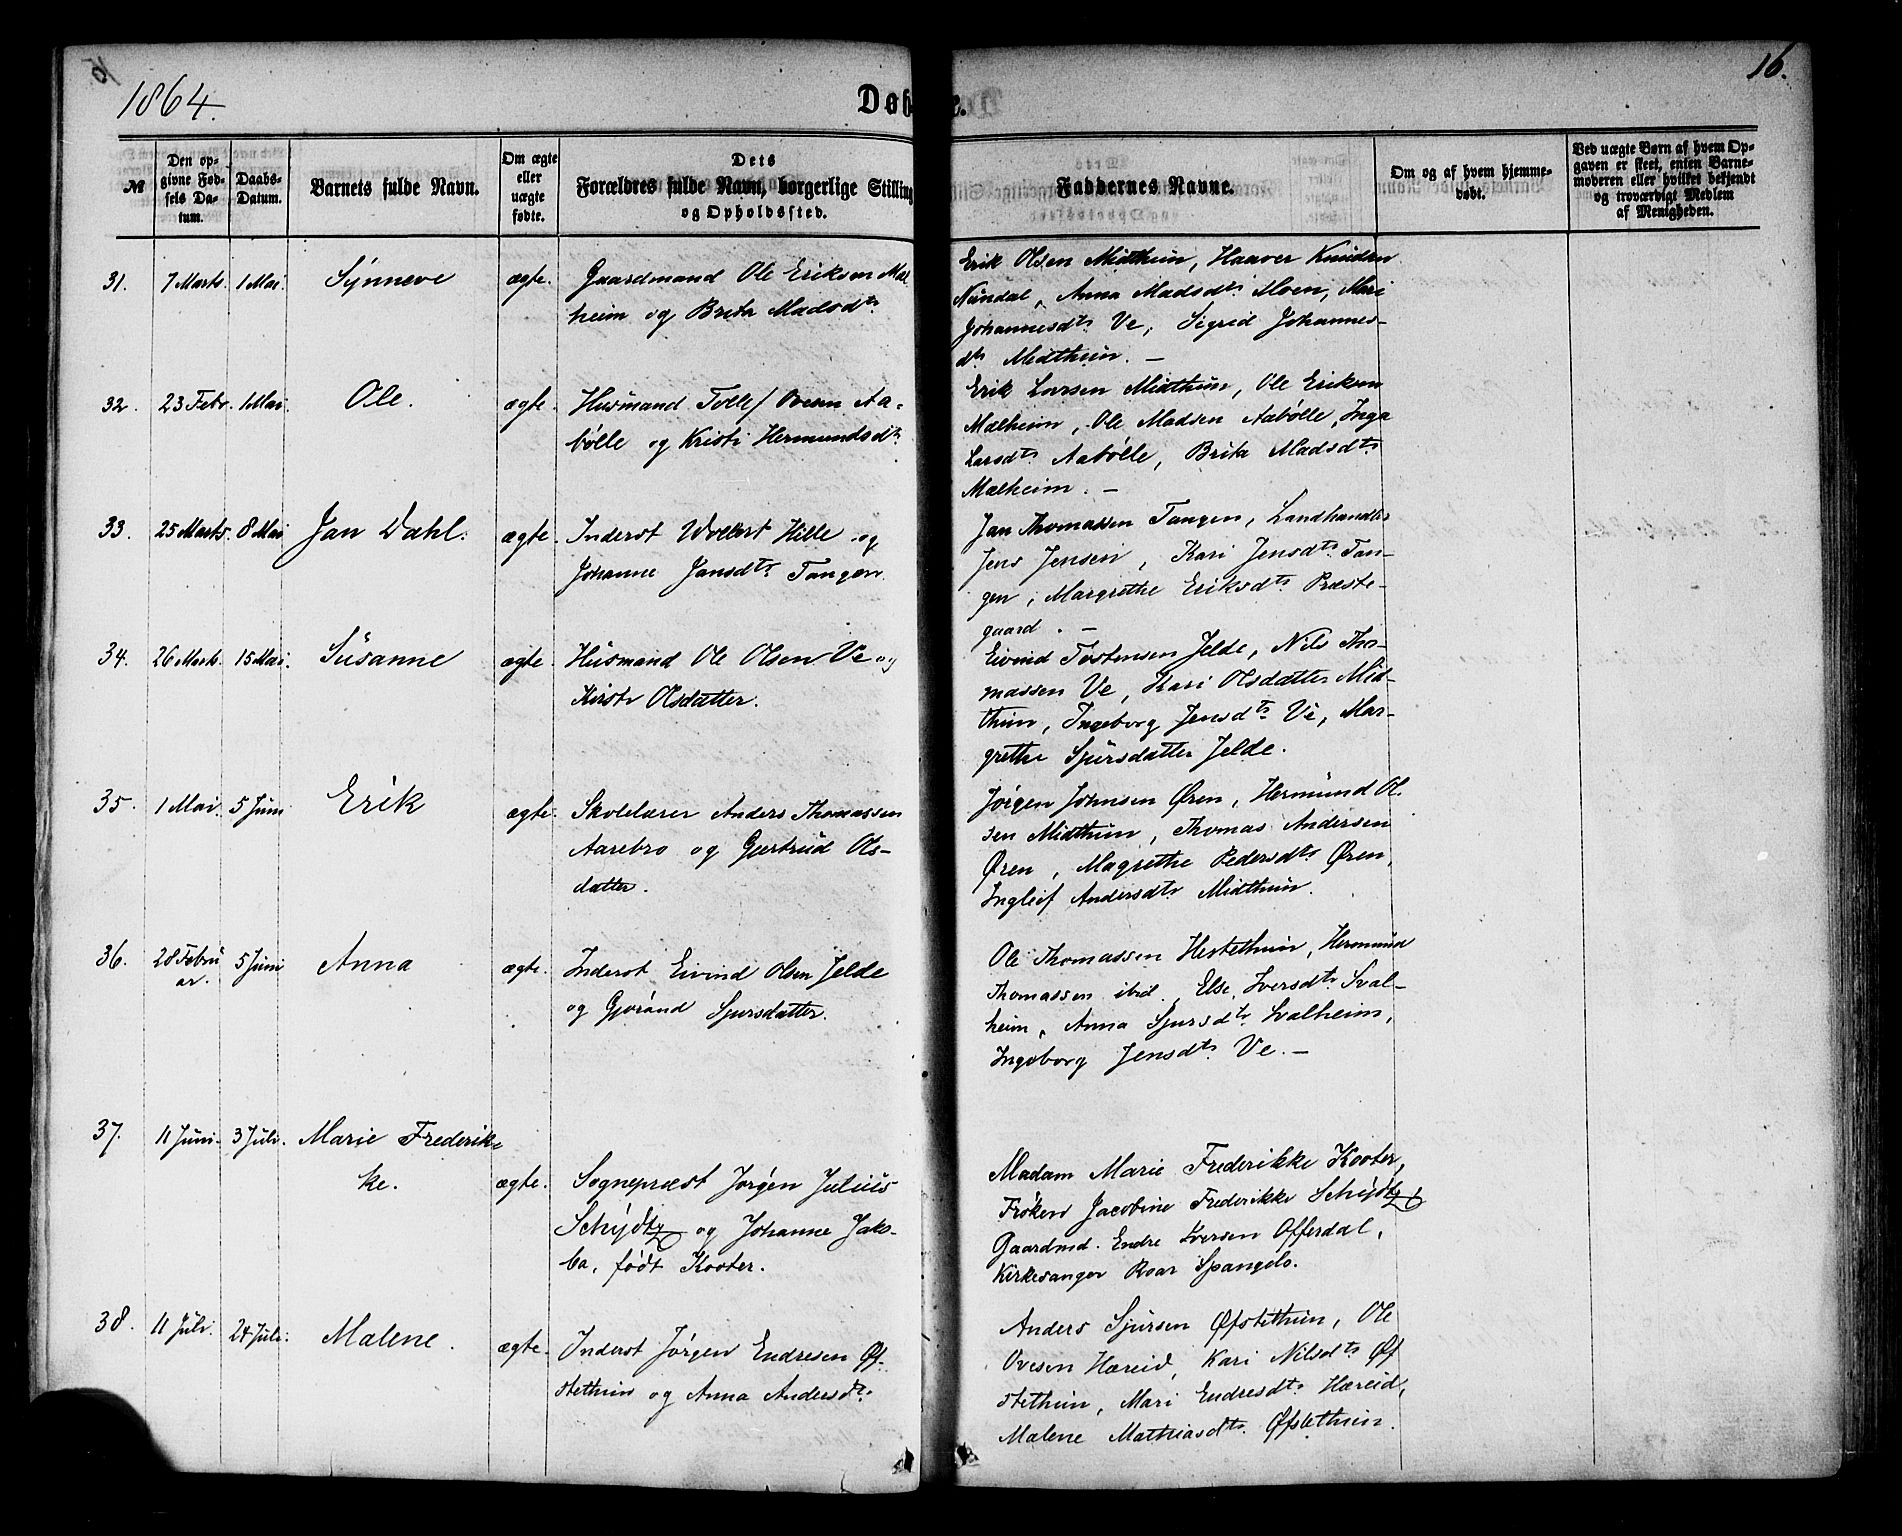 1864.
Døbte.
16.
№
Den opgivne Fødsels Datum.
Daabs-Datum.
Barnets fulde Navn.
Om ægte eller uægte fødte.
Dets Forældres fulde Navn, borgerlige Stilling og Opholdssted.
Faddernes Navne.
Om og af hvem hjemmedøbt.
Ved uægte Børn af hvem Opgaven er skeet, enten Barnemoderen eller hvilket bekjendt og troværdigt Medlem af Menigheden.
31. 7 Marts. 1 Mai. Synneve ægte. Gaardmand Ole Eriksen Mæl
heim og Brita Madsdtr
Erik Olsen Midthun, Haaver Knudsen
Nundal, Anna Madsdtr Moen, Mari
Johannesdtr Ve, Sigrid Johannes-
dtr Midthun. —
32. 23 Febr. 1 Mai. Ole. ægte. Husmand Tolle/ Ovesen Aa-
bölle og Kristi Hermundsdtr
Erik Larsen Midthun, Ole Eriksen
Mælheim, Ole Madsen Aabölle, Inga
Larsdtr Aabölle, Brita Madsdtr
Mælheim. —
33. 25 Marts. 8 Mai Jan Dahl. ægte. Inderst Wollert Hille og
Johanne Jansdtr Tangen
Jan Thomassen Tangen, Landhandler
Jens Jensen, Kari Jensdtr Tan-
gen, Margrethe Eriksdtr Præste-
gaard. —
34. 26 Marts. 15 Mai. Susanne ægte. Husmand Ole Olsen Ve og
Kirsti Olsdatter.
Eivind Torstensen Jelde, Nils Tho-
massen Ve, Kari Olsdatter Mid-
thun, Ingeborg Jensdtr Ve, Mar-
grethe Sjursdatter Jelde.
35. 1 Mai. 5 Juni Erik ægte. Skolelærer Anders Thomassen
Aarebro og Gjertrud Ols-
datter.
Jörgen Johnsen Øren, Hermund Ol-
sen Midthun, Thomas Andersen
Øren, Magrethe Pedersdtr Øren,
Ingleif Andersdtr Midthun.
36. 28 Febru
ar. 5 Juni Anna ægte. Inderst Eivind Olsen Jelde
og Gjörand Sjursdatter.
Ole Thomassen Hestethun, Hermund
Thomassen ibid. Else Iversdtr Sval-
heim, Anna Sjursdtr Svalheim,
Ingeborg Jensdtr Ve. —
37. 11 Juni. 3 Juli. Marie Frederik-
ke. ægte. Sognepræst Jørgen Julius
Schÿdtz og Johanne Jako-
ba, født Kooter.
Madam Marie Frederikke Kooter,
Frøken Jacobine Frederikke Schÿdtz
Gaardmd. Endre Iversen Offerdal,
Kirkesanger Roar Spangelo.
38. 11 Juli. 24 Juli. Malene. ægte. Inderst Jørgen Endresen Øf-
stethun og Anna Andersdtr.
Anders Sjursen Øfstethun, Ole
Ovesen Hæreid, Kari Nilsdtr Øf
stethun, Mari Endresdtr Hæreid,
Malene Mathiasdtr Øfstethun.